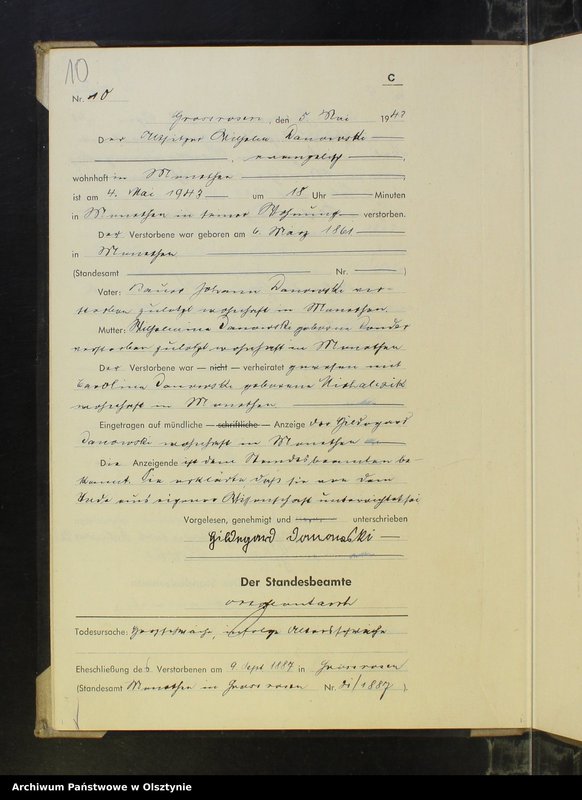 10
C
Nr. 10
Grossrosen, den 5. Mai 1943
Der Altsitzer Wilhelm Danowski
, evangelisch,
wohnhaft in Monethen
ist am 4. Mai 1943 um 18 Uhr Minuten
in Monethen in seiner Wohnung verstorben.
Der Verstorbene war geboren am 6. März 1861
in Monethen
(Standesamt Nr. )
Vater: Bauer Johann Danowski ver-
storben zuletzt wohnhaft in Monethen.
Mutter: Wilhelmine Danowski geborene
verstorben zuletzt wohnhaft in Monethen
Der Verstorbene war — nicht — verheiratet gewesen mit
Caroline Danowski geborene
wohnhaft in Monethen
Eingetragen auf mündliche — schriftliche — Anzeige der Hildegard
Danowski wohnhaft in Monethen
Die Anzeigende ist dem Standesbeamten be-
kannt. Sie erklärte daß sie von dem
Tode aus eigener Wissenschaft unterrichtet sei
Vorgelesen, genehmigt und unterschrieben
Hildegard Danowski
Der Standesbeamte
Todesursache: Herzschwäche, infolge Altersschwäche
Eheschließung des Verstorbenen am 9. Sept. 1887 in Grossrosen
(Standesamt Monethen in Grossrosen Nr. /1887 ).
Archiwum Państwowe w Olsztynie